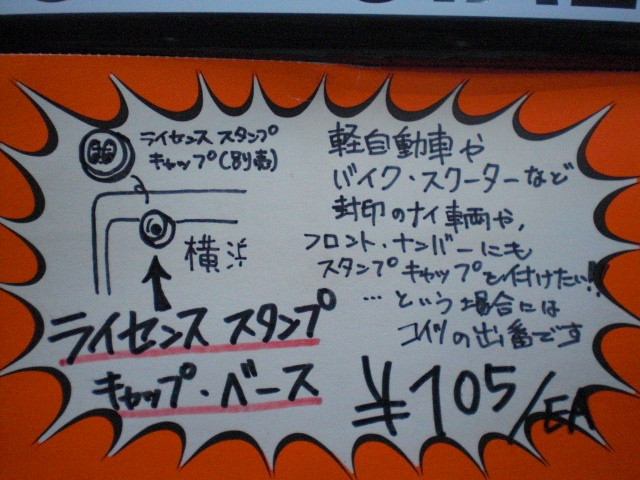 ライセンス スタンプ
キャップ(別売)
横浜
ライセンス スタンプ
キャップ・ベース
軽自動車や
バイク・スクーターなど
封印のナイ車両や,
フロント・ナンバーにも
スタンプキャップを付けたい!!
…という場合には
コイツの出番です
¥105/EA